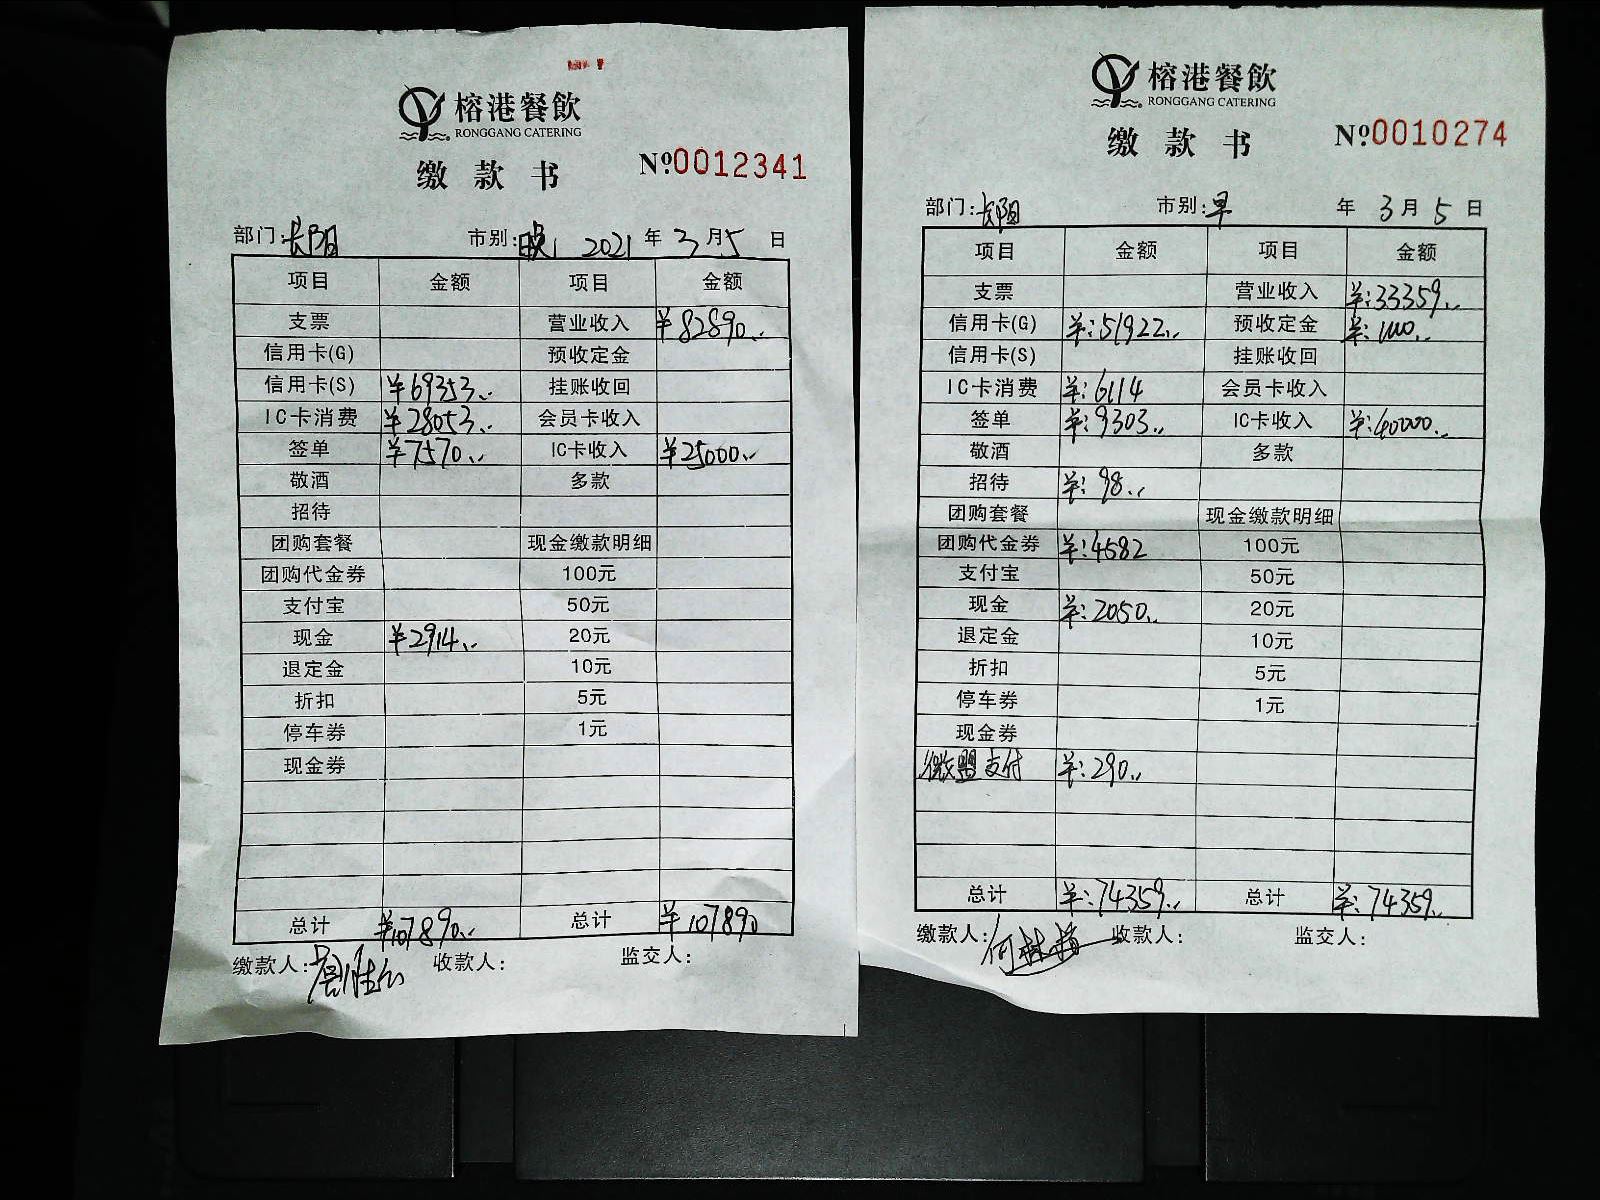 榕港餐飲
RONGGANG CATERING
缴款书 №0012341
部门: 长阳 市别: 晚 2021年3月5日
项目 金额 项目 金额
支票 营业收入 ¥82890..
信用卡(G) 预收定金
信用卡(S) ¥69353.. 挂账收回
IC卡消费 ¥28053.. 会员卡收入
签单 ¥7570.. IC卡收入 ¥25000..
敬酒 多款
招待
团购套餐 现金缴款明细
团购代金券 100元
支付宝 50元
现金 ¥2914.. 20元
退定金 10元
折扣 5元
停车券 1元
现金券
总计 ¥107890.. 总计 ¥107890
缴款人: 收款人: 监交人:
榕港餐飲
RONGGANG CATERING
缴款书 №0010274
部门: 长阳 市别: 早 年3月5日
项目 金额 项目 金额
支票 营业收入 ¥:33359..
信用卡(G) ¥:51922.. 预收定金 ¥:1000..
信用卡(S) 挂账收回
IC卡消费 ¥:6114 会员卡收入
签单 ¥:9303.. IC卡收入 ¥:40000..
敬酒 多款
招待 ¥:98..
团购套餐 现金缴款明细
团购代金券 ¥:4582 100元
支付宝 50元
现金 ¥:2050.. 20元
退定金 10元
折扣 5元
停车券 1元
现金券
微盟支付 ¥:290..
总计 ¥:74359.. 总计 ¥:74359..
缴款人: 何林梅 收款人: 监交人: